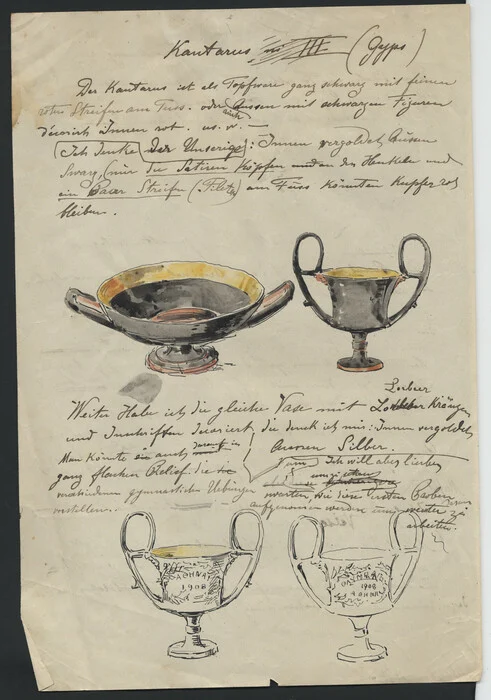 Kantarus III (Gyps)
Der Kantarus ist als Topfware ganz schwarz mit feinen
roten Streifen am Fuss. oder auch Aussen mit schwarzen Figuren
Innen rot. us. w. —
(Ich denke der Unserige: Innen vergoldet, Aussen
Swarz, (nur die Satiren Köpfen und an den Henkeln und
ein Paar Streife (Filets) am Fuss könnten Kupfer rot
bleiben.
Weiter Habe ich die gleichen Vase mit Lorbeer Kränzen
und Inschriften decoriert die denk ich mir: Innen vergoldet
Aussen Silber.
Man könnte auch darauf in
ganz flachen Relief die
verschiedenen gymnastischen Uebungen
vorstellen..
Ich will aber lieber
warten, bis diese ersten Proben
aufgenommen werden und weiter zu
arbeiten.
ΑΘΗΝΑΙ
1908
1908
ΑΘΗΝΑΙ